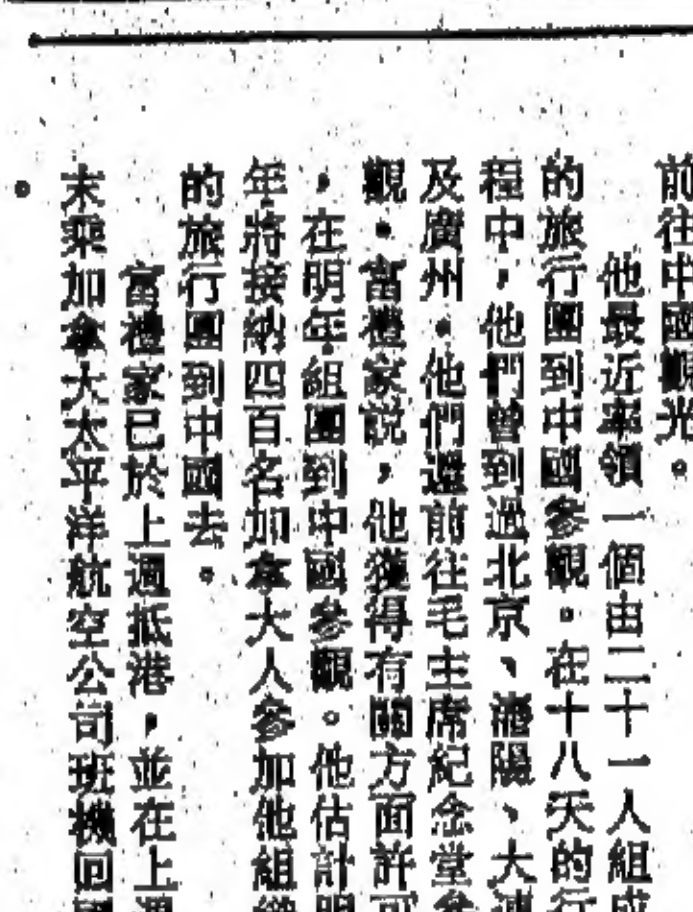 前往中國觀光。
他最近率領一個由二十一人組成
的旅行團到中國參觀。在十八天的行
程中，他們曾到過北京、瀋陽、大連
及廣州。他們還前往毛主席紀念堂參
觀。富禮家說，他獲得有關方面許可
，在明年組團到中國參觀。他估計明
年將接納四百名加拿大人參加他組織
的旅行團到中國去。
富禮家已於上週抵港，並在上週
末乘加拿大太平洋航空公司班機回國
。